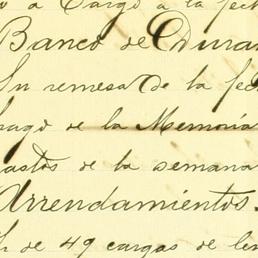 o a Cargo a la fech
Banco de Duran
Su remesa de la fec
pago de la Memoria
astos de la semana
Arrendamientos.
de 49 cargas de le